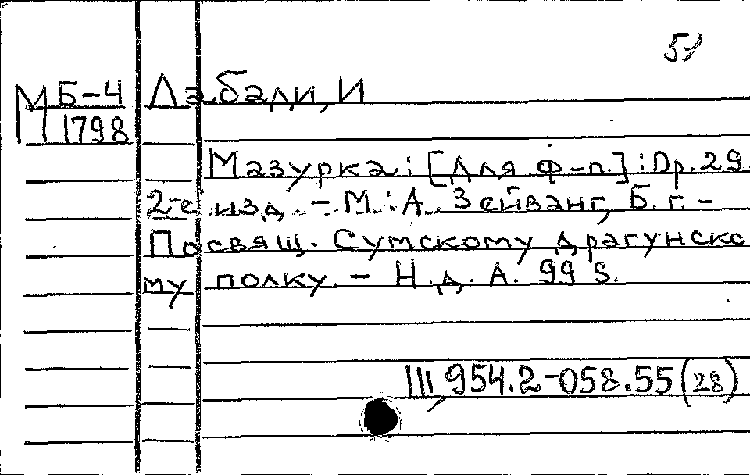 51
М Б-4 Лабади, И
1798
Мазурка: [Для ф-п.]: Op. 29.
2-е изд. - М.: А. Зейванг, Б. г. -
Посвящ. Сумскому драгунско
му полку. - Н. д. А. 99 S.
III, 954.2-058.55 (28)